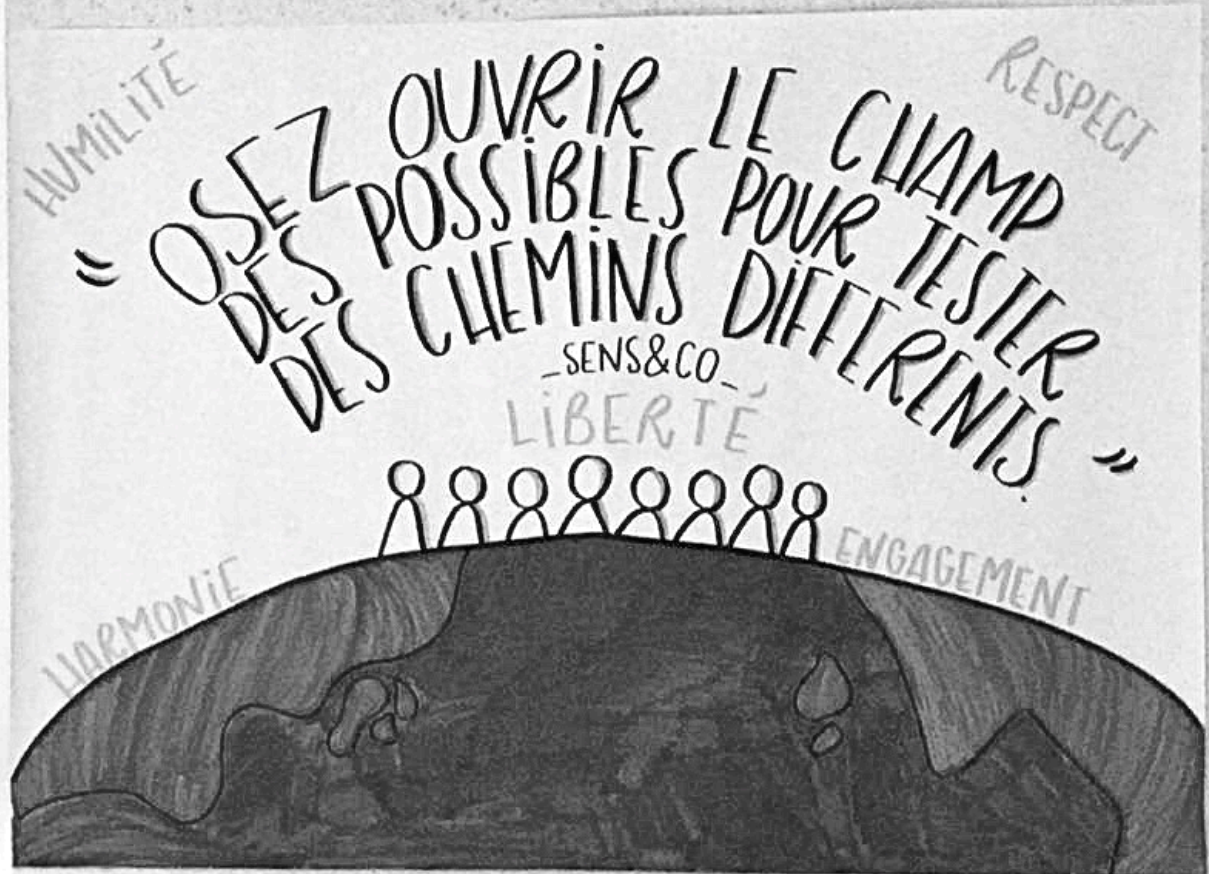 HUMILITÉ
RESPECT
" OSEZ OUVRIR LE CHAMP
DES POSSIBLES POUR TESTER
DES CHEMINS DIFFERENTS. "
_SENS&CO_
LIBERTÉ
HARMONIE
ENGAGEMENT